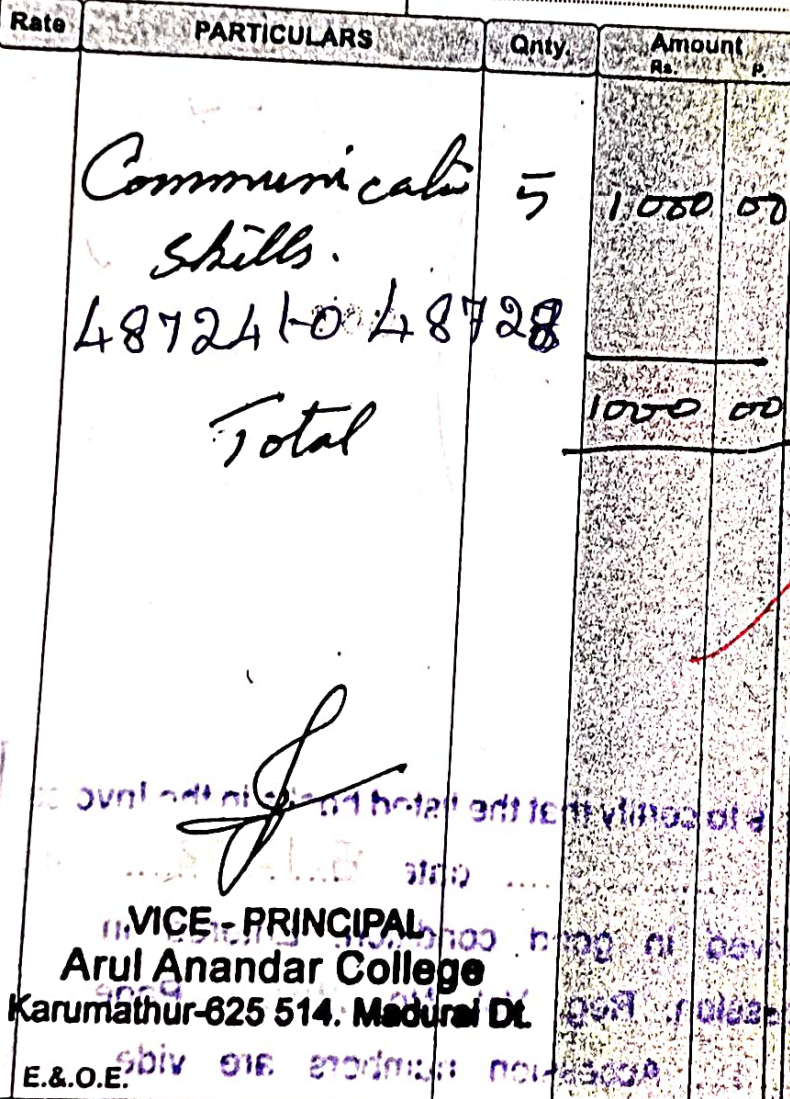 Rate PARTICULARS Qnty. Amount
Rs. P.
Communicati 5 1000 00
Skills.
48724 to 48728
Total 1000 00
VICE - PRINCIPAL
Arul Anandar College
Karumathur-625 514. Madurai Dt.
E.&.O.E.